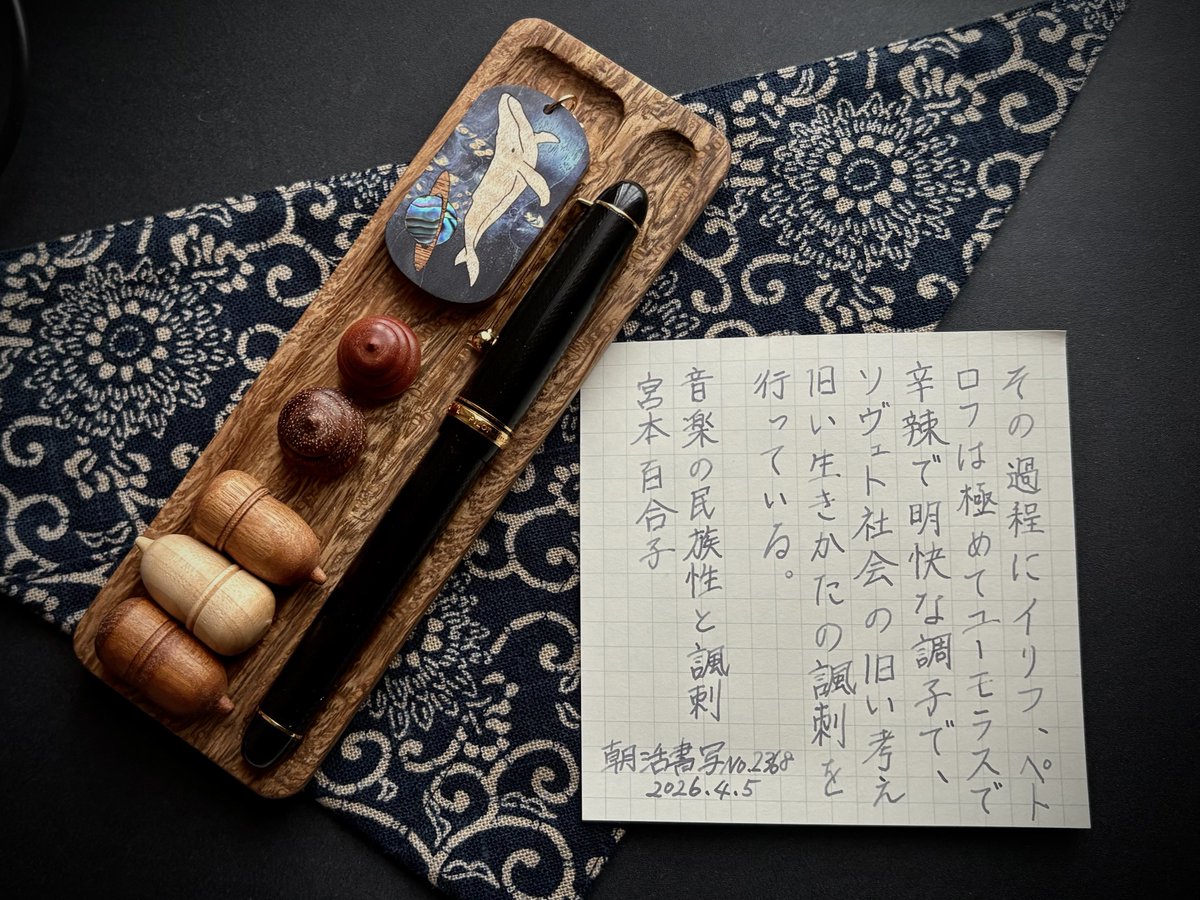 その過程にイリフ、ペト
ロフは極めてユーモラスで
辛辣で明快な調子で、
ソヴェト社会の旧い考え
旧い生きかたの諷刺を
行っている。
音楽の民族性と諷刺
宮本百合子
朝活書写No.2368
2026.4.5